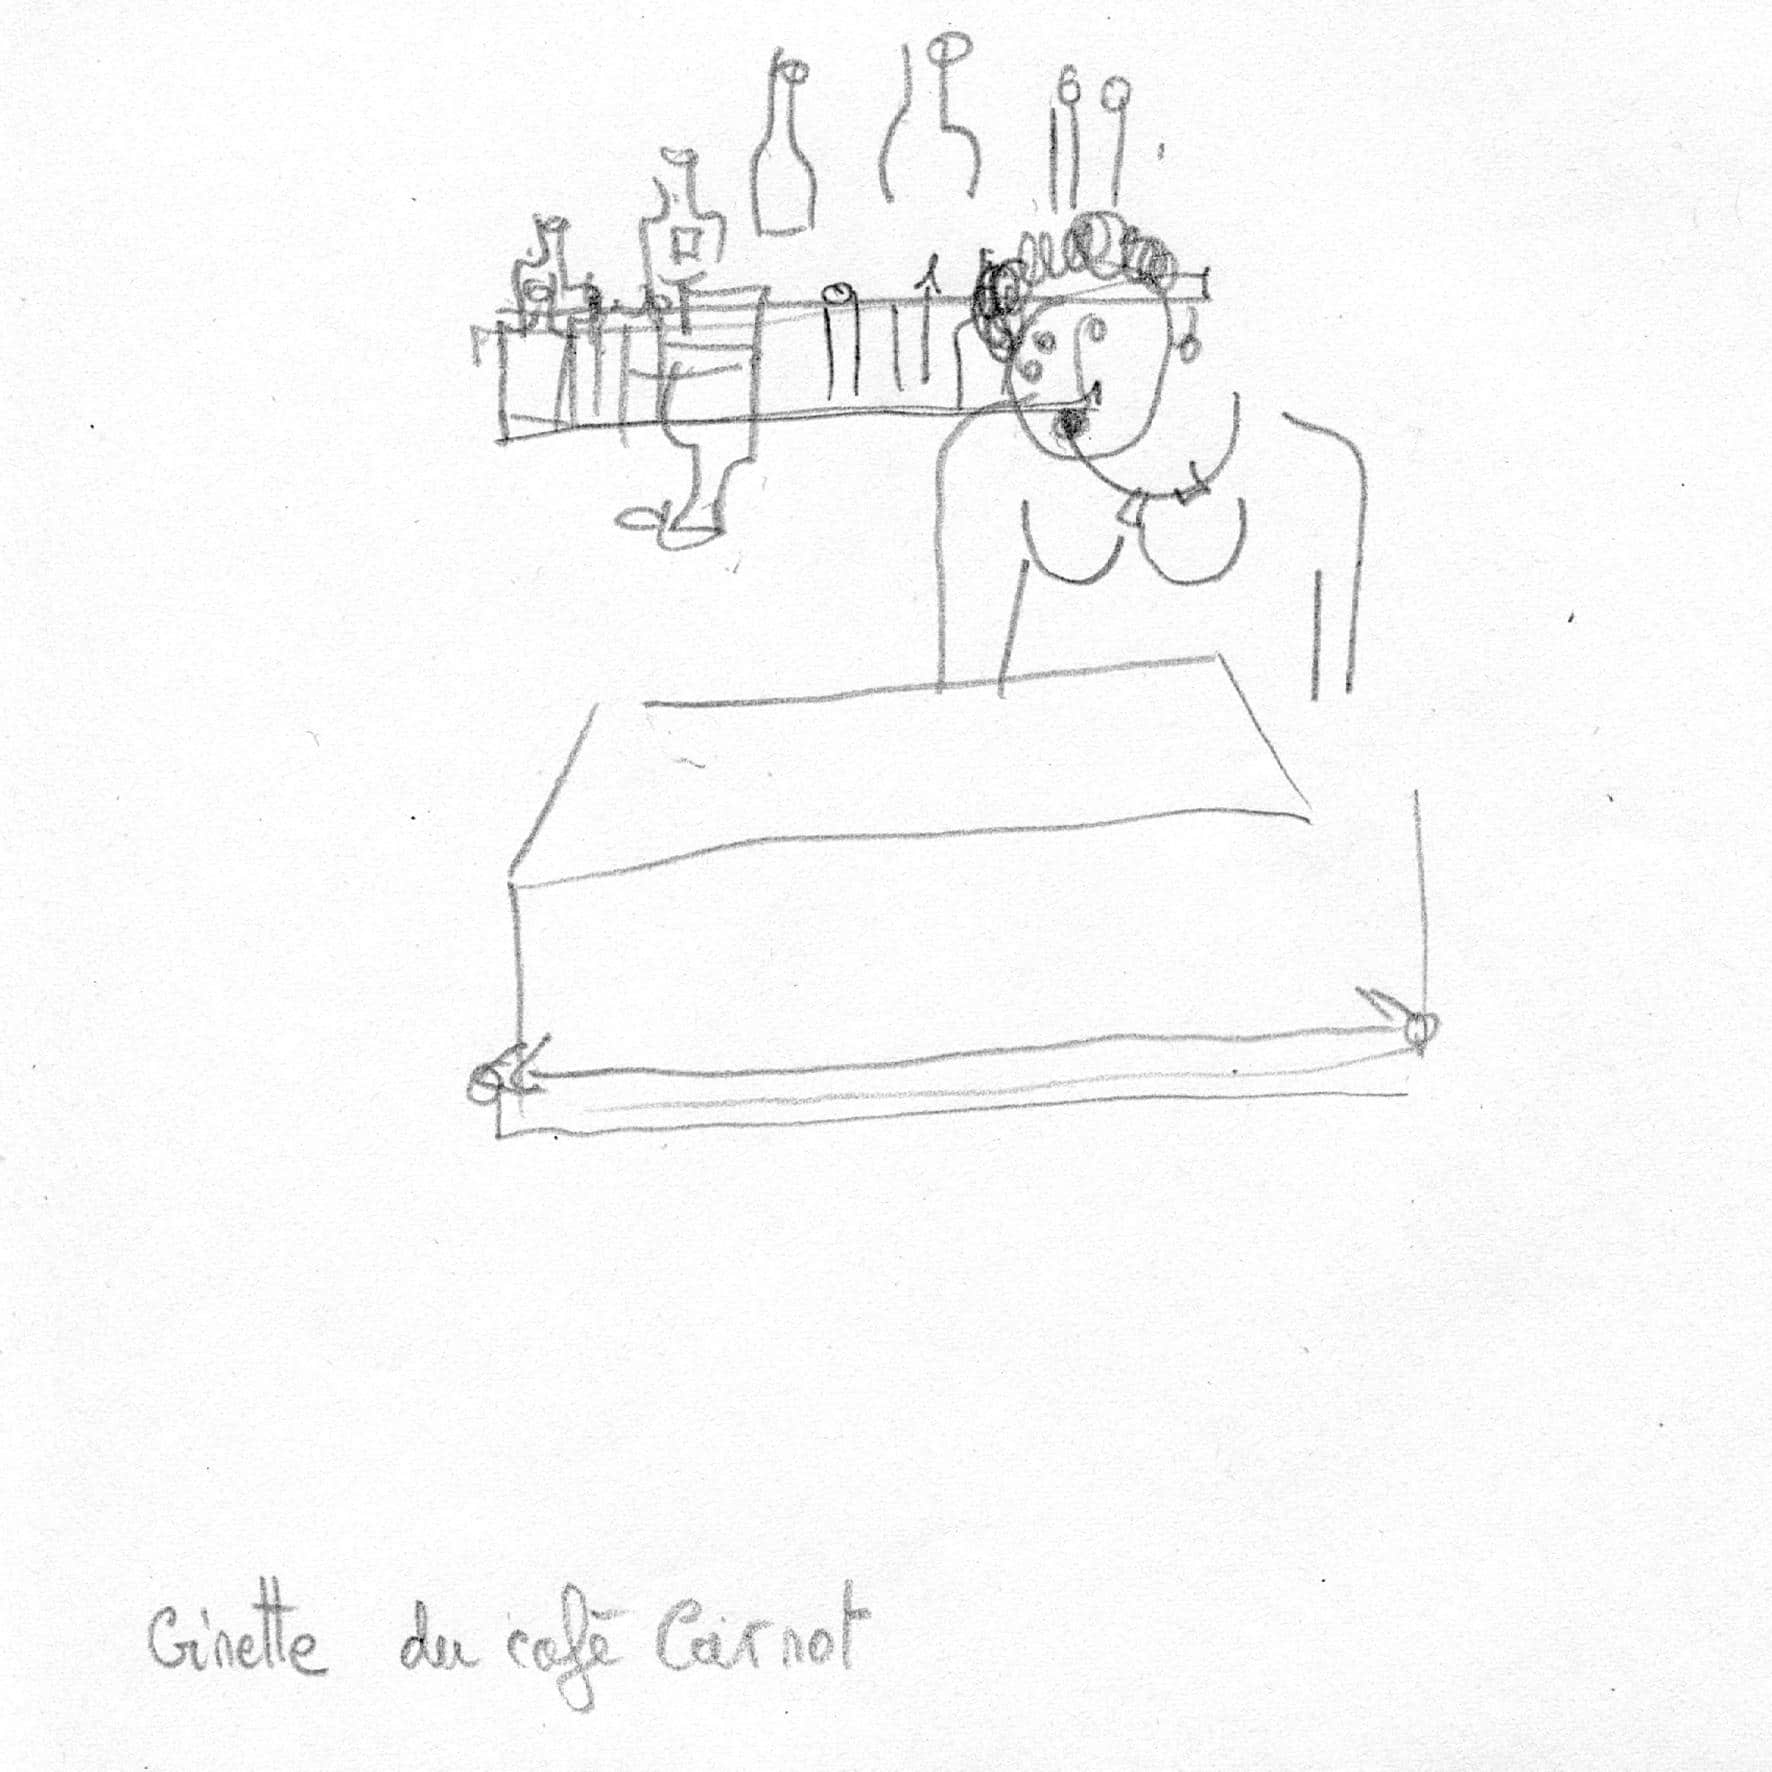 Ginette du café Carnot